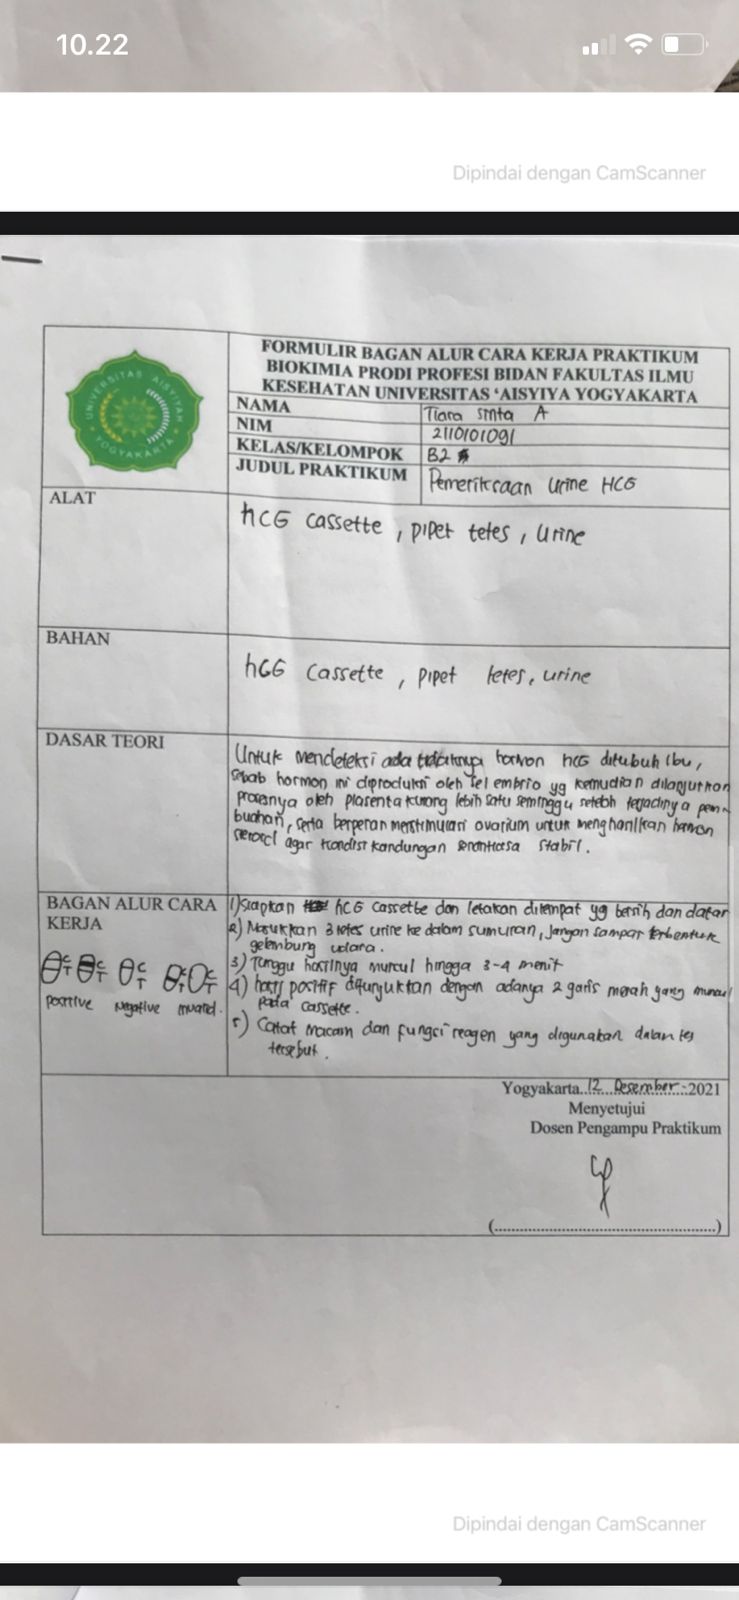 10.22
Dipindai dengan CamScanner
UNIVERSITAS 'AISYIYAH YOGYAKARTA
FORMULIR BAGAN ALUR CARA KERJA PRAKTIKUM
BIOKIMIA PRODI PROFESI BIDAN FAKULTAS ILMU
KESEHATAN UNIVERSITAS ‘AISYIYA YOGYAKARTA
NAMA Tiara A
NIM 2110101091
KELAS/KELOMPOK B2
JUDUL PRAKTIKUM Pemeriksaan Urine HCG
ALAT
hCG cassette, pipet tetes, urine
BAHAN
hCG Cassette, pipet tetes, urine
DASAR TEORI
Untuk mendeteksi ada tidaknya hormon hCG ditubuh ibu,
sebab hormon ini diproduksi oleh sel embrio yg kemudian dilanjutkan
prosesnya oleh plasenta kurang lebih satu seminggu setelah terjadinya pem-
buahan, serta berperan menstimulasi ovarium untuk menghasilkan hormon
steroid agar kondisi kandungan senantiasa stabil.
BAGAN ALUR CARA
KERJA
C T C T C T C T C T
positive Negative invalid.
1) Siapkan hCG cassette dan letakan ditempat yg bersih dan datar
2) Masukkan 3 tetes urine ke dalam sumuran, jangan sampai terbentuk
gelembung udara.
3) Tunggu hasilnya muncul hingga 3-4 menit
4) hasil positif ditunjukkan dengan adanya 2 garis merah yang muncul
pada cassette.
5) Catat macam dan fungsi reagen yang digunakan dalam tes
tersebut.
Yogyakarta..12...Desember..-2021
Menyetujui
Dosen Pengampu Praktikum
(......................................................)
Dipindai dengan CamScanner